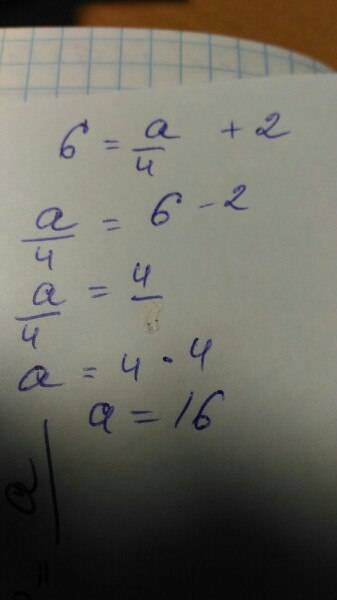 6 = a/4 + 2
a/4 = 6 - 2
a/4 = 4/
a = 4 · 4
a = 16
= a